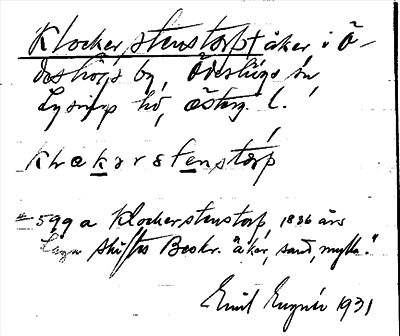 Klockerstenstorp, åker, i Ö-
deshögs by, Ödeshögs sn,
Lysings hd, Österg. l.
599 a Klockerstenstorp, 1836 års
Laga skiftes Beskr. "åker, sand, mylla."
Emil 1931